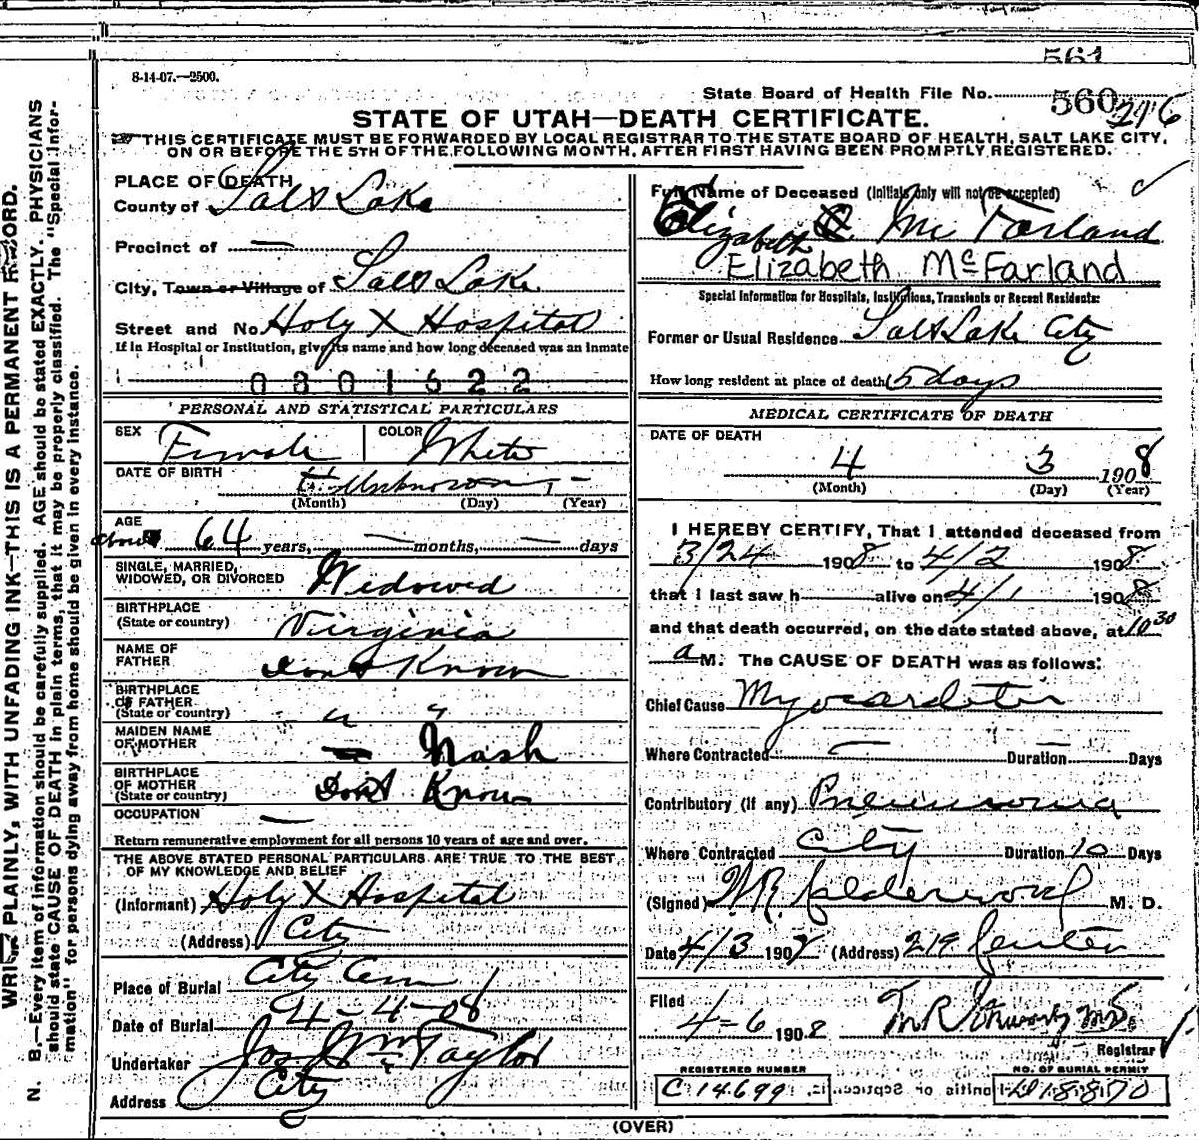 561
8-14-07.—2500.
State Board of Health File No. 560 296
STATE OF UTAH—DEATH CERTIFICATE.
THIS CERTIFICATE MUST BE FORWARDED BY LOCAL REGISTRAR TO THE STATE BOARD OF HEALTH, SALT LAKE CITY,
ON OR BEFORE THE 5TH OF THE FOLLOWING MONTH, AFTER FIRST HAVING BEEN PROMPTLY REGISTERED.
PLACE OF DEATH
County of Salt Lake
Precinct of —
City, Town or Village of Salt Lake
Street and No. Holy X Hospital
If in Hospital or Institution, give its name and how long deceased was an inmate
0301622
PERSONAL AND STATISTICAL PARTICULARS
SEX Female COLOR White
DATE OF BIRTH
Unknown —
(Month) (Day) (Year)
AGE
about 64 years, — months, — days
SINGLE, MARRIED,
WIDOWED, OR DIVORCED Widowed
BIRTHPLACE
(State or country) Virginia
NAME OF
FATHER Dont Know
BIRTHPLACE
OF FATHER
(State or country) " "
MAIDEN NAME
OF MOTHER Nash
BIRTHPLACE
OF MOTHER
(State or country) Dont Know
OCCUPATION —
Return remunerative employment for all persons 10 years of age and over.
THE ABOVE STATED PERSONAL PARTICULARS ARE TRUE TO THE BEST
OF MY KNOWLEDGE AND BELIEF
(Informant) Holy X Hospital
(Address) City
Place of Burial City Cem
Date of Burial 4-4-08
Undertaker Jos Wm Taylor
Address City
Full Name of Deceased (Initials only will not be accepted)
Elizabeth Mc Farland
Elizabeth McFarland
Special Information for Hospitals, Institutions, Transients or Recent Residents:
Former or Usual Residence Salt Lake City
How long resident at place of death 5 days
MEDICAL CERTIFICATE OF DEATH
DATE OF DEATH
4 3 1908
(Month) (Day) (Year)
I HEREBY CERTIFY, That I attended deceased from
3/24 1908 to 4/2 1908
that I last saw h alive on 4/1 1908
and that death occurred, on the date stated above, at 10 30
a M. The CAUSE OF DEATH was as follows:
Chief Cause Myocarditis
Where Contracted — Duration — Days
Contributory (if any) Pneumonia
Where Contracted City Duration 10 Days
(Signed) W.R. Calderwood M. D.
Date 4/3 1908 (Address) 219 Center
Filed
4-6 1908
Registrar
REGISTERED NUMBER
C 14699
NO. OF BURIAL PERMIT
D 18870
(OVER)
WRITE PLAINLY, WITH UNFADING INK—THIS IS A PERMANENT RECORD.
N. B.—Every item of information should be carefully supplied. AGE should be stated EXACTLY. PHYSICIANS
should state CAUSE OF DEATH in plain terms, that it may be properly classified. The "Special Infor-
mation" for persons dying away from home should be given in every instance.